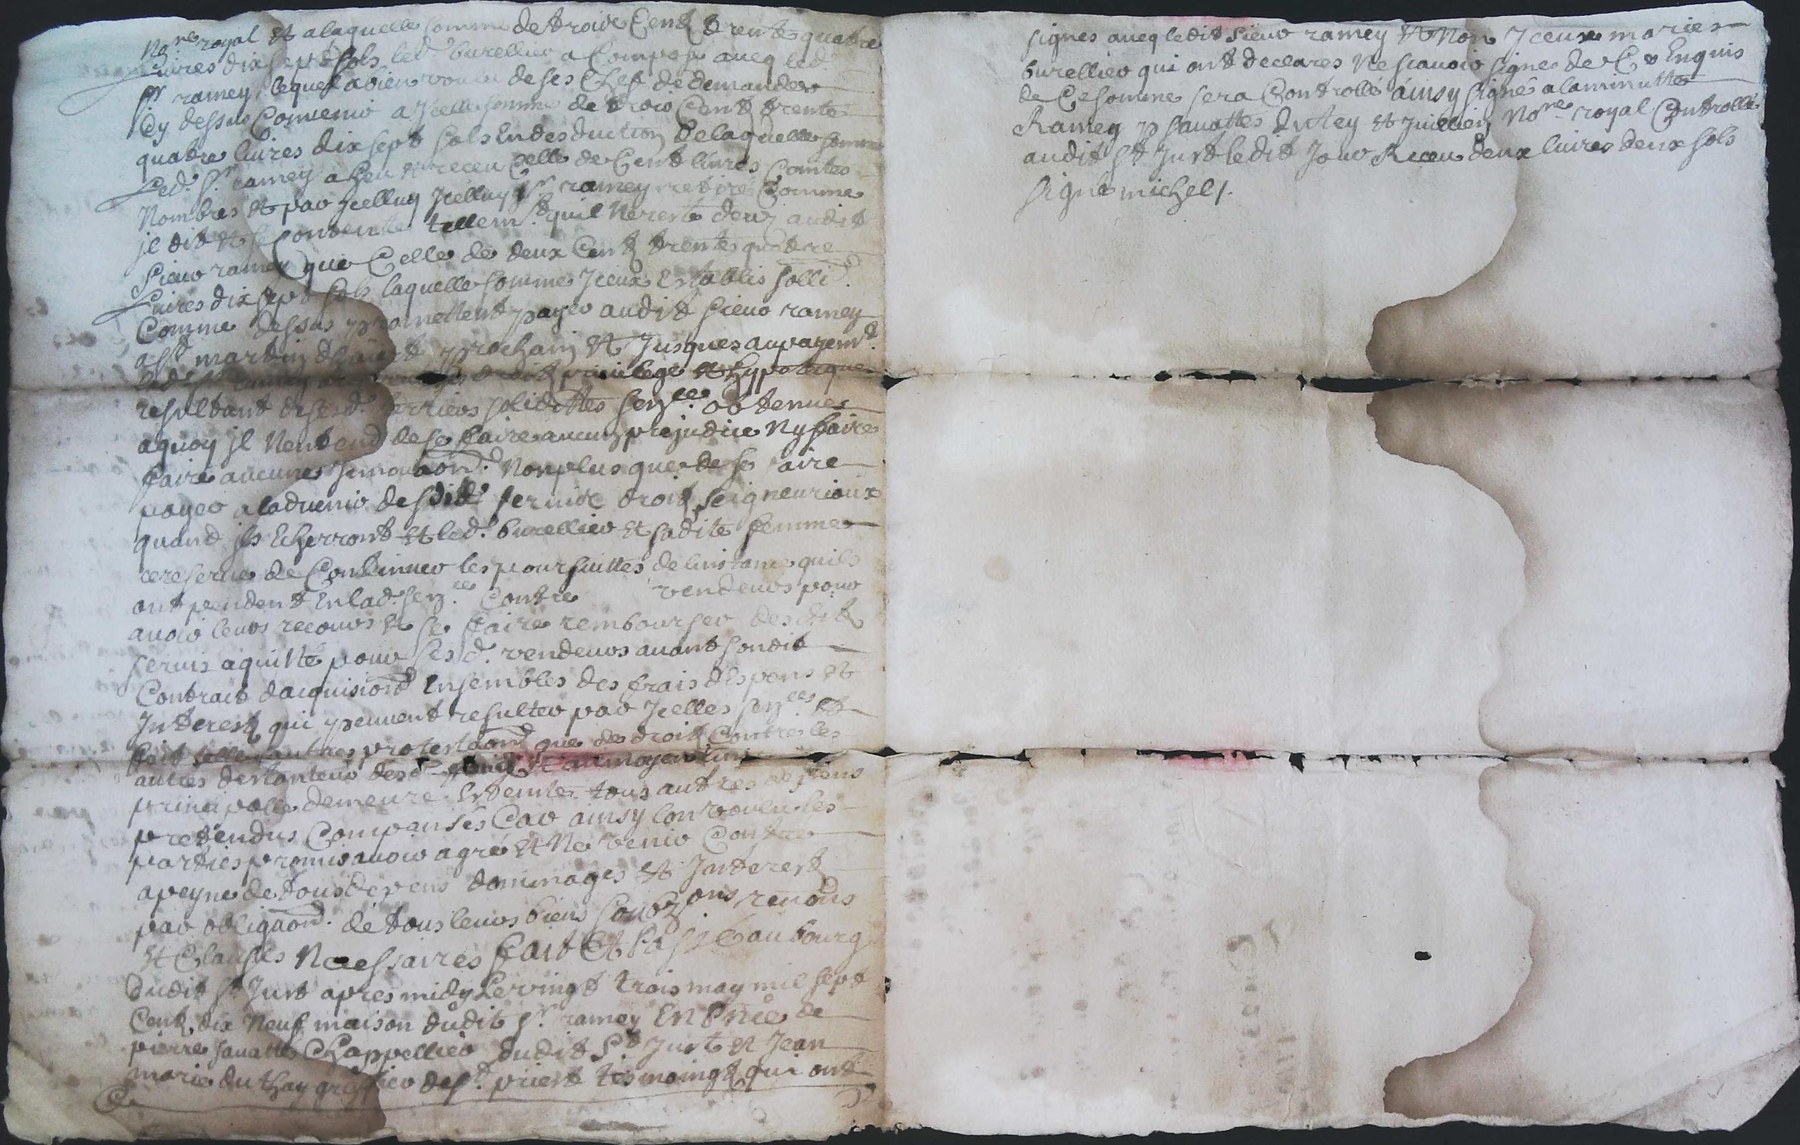 No.re royal et a laquelle somme de trois Cent trente quatre
livres dix sept sols led. burellier a Compose avecq led.
Sr ramey lequel a bien voulu de ses Chef de demandes
Cy dessus Convenir a jcelle somme de trois Cent trente
quatre livres dix sept sols En desduction de laquelle somme
Led. Sr ramey a heu et receu Celle de Cent livres Comtes
Nombres et par jcelluy jcelluy Sr ramey retires Comme
jl dit et se Contente tellem.t quil Ne reste deuz audit
sieur ramey que Celle de deux Cent trente quatre
livres dix sept sols laquelle somme jceux Establis solli.d
Comme dessus promettent payer audit sieur ramey
a St martin dhiver prochain et jusques au payem.t
led. Sr ramey droits privilege et hypotheque
resultant de sesd. terriers susdittes senz.ce obtenues
a quoy jl N'entend de se faire aucun prejudice Ny faire
faire aucunes jnnovaon. Non plus que de se faire
payer a ladvenir desdits servis droits seigneuriaux
quand jls Echerront et led. burellier et sadite femme
ce reserve de Continuer les poursuittes de linstance quils
ont pendent En lad. sen.ce Contre vendeurs pour
avoir leurs recours et se faire rembourser desdits
servis aquitté pour sesd. vendeurs avant sondit
Contrait dacquision Ensembles des frais despens et
Interest qui peuvent resulter par jcelles senz.ces et
font telles autres protestaon. que de droit Contre les
autres destanteurs desd. et au moyen
principalle demeure Esteinte tous autres
pretendus Compensés Car ainsy lon voulu les
parties promis avoir agré et Ne venir Contre
a peyne de tous despens dommages et Interest
par obligaon. de tous leurs biens Soubz.ons renons
et Clauses Necessaires fait Et passé au bourg
dudit St Just apres midy Le vingt trois may mil sept
Cent dix Neuf maison dudit Sr ramey En pnce de
pierre savatte Chappellier dudit St Just et Jean
marie duthay greffier de St priest tesmoingt qui ont
signes avecq ledit sieur ramey et Non jceux maries
burellier qui ont declares Ne scavoir signer de Ce Enquis
de Ce somme sera Controllé ainsy signé a la minutte
Ramey p savattes Dutey et Jullien No.re royal Controllé
audit St Just ledit Jour Receu deux livres deux sols
signé michel /.